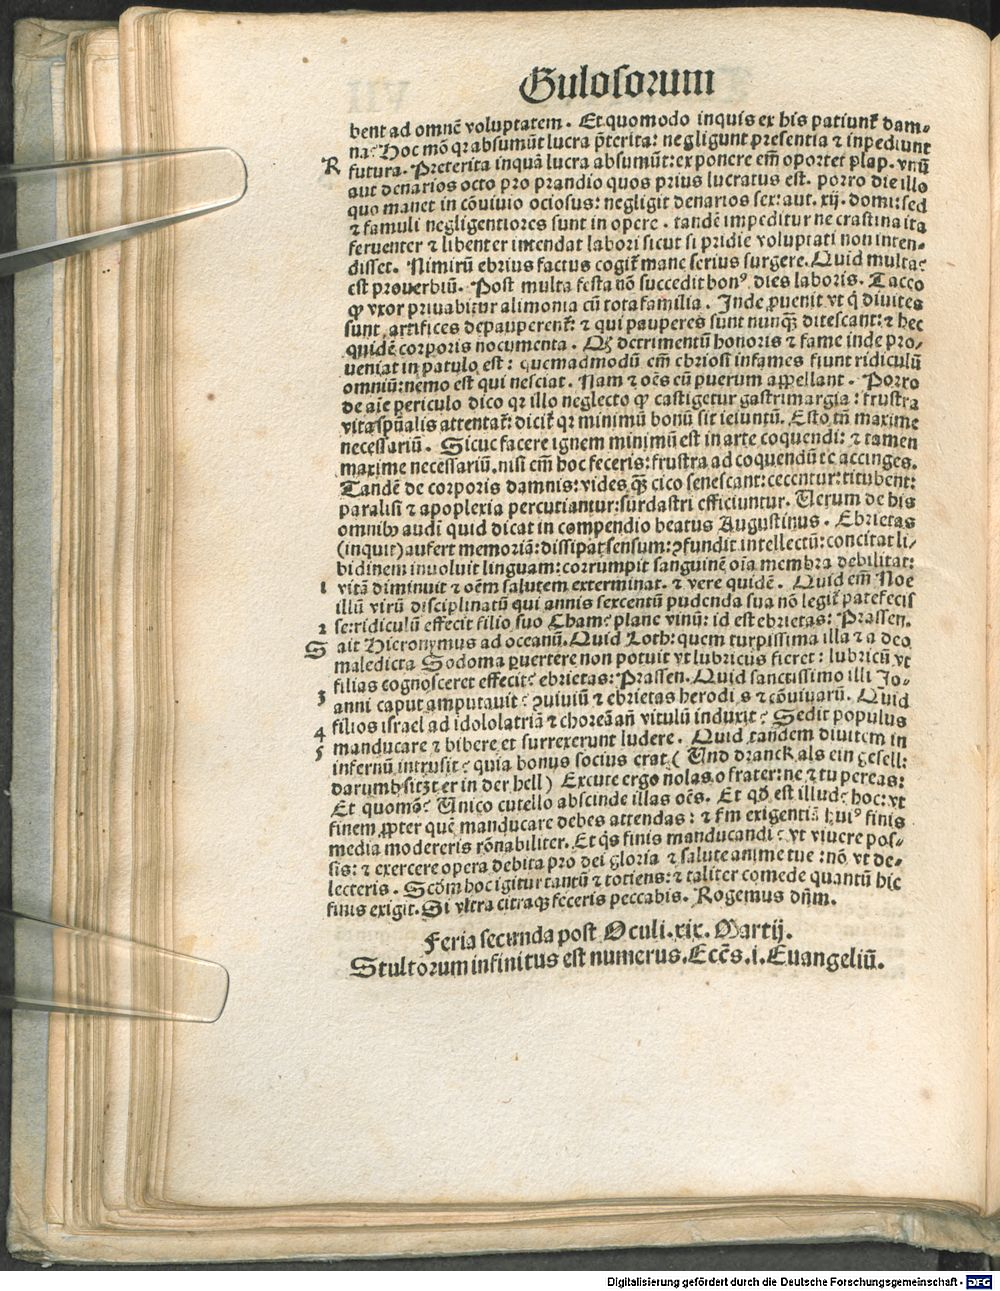 Gulosorum
bent ad omnē voluptatem. Et quomodo inquis ex his patiunt᷑ dam-
na: Hoc mō qꝛ absumūt lucra p̄terita: negligunt presentia ⁊ inpediunt
R futura. Preterita inquā lucra absumūt: exponere em̄ oportet plap. vnū
aut denarios octo pro prandio quos prius lucratus est. porro die illo
quo manet in cōuiuio ociosus: negligit denarios sex: aut. xij. domi: sed
⁊ famuli negligentiores sunt in opere. tandē impeditur ne crastina ita
feruenter ⁊ libenter intendat labori sicut si pridie voluptati non inten-
disset. Nimirū ebrius factus cogit᷑ mane serius surgere. Quid multa:
est prouerbiū. Post multa festa nō succedit bonꝰ dies laboris. Tacco
ꝙ vxor priuabitur alimonia cū tota familia. Inde ꝓuenit vt q̄ diuites
sunt, artifices depauperent᷑: ⁊ qui pauperes sunt nunqꝫ ditescant: ⁊ hec
quidē corporis nocumenta. Qꝫ detrimentū honoris ⁊ fame inde pro-
ueniat in patulo est: quemadmodū em̄ ebriosi infames fiunt ridiculū
omniū: nemo est qui nesciat. Nam ⁊ oēs eū puerum appellant. Porro
de aīe periculo dico qꝛ illo neglecto ꝙ castigetur gastrimargia: frustra
vita sp̄ualis attentat᷑: dicit᷑ qꝛ minimū bonū sit ieiuniū. Esto tn̄ maxime
necessariū. Sicut facere ignem minimū est in arte coquendi: ⁊ tamen
maxime necessariū. nisi em̄ hoc feceris: frustra ad coquendū te accinges.
Tandē de corporis damnis: vides qꝫ cito senescant: cecentur: titubent:
paralisi ⁊ apoplexia percutiantur: surdastri efficiuntur. Uerum de his
omnibꝰ audi quid dicat in compendio beatus Augustinus. Ebrietas
(inquit) aufert memoriā: dissipat sensum: ꝯfundit intellectū: concitat li-
bidinem inuoluit linguam: corrumpit sanguinē oīa membra debilitat:
1 vitā diminuit ⁊ oēm salutem exterminat. ⁊ vere quidē. Quid em̄ Noe
illū virū disciplinatū qui annis sexcentū pudenda sua nō legit᷑ patefecis
2 se: ridiculū effecit filio suo Cham: plane vinū: id est ebrietas: Prassen.
S ait Hieronymus ad oceanū. Quid Loth: quem turpissima illa ⁊ a deo
maledicta Sodoma ꝑuertere non potuit vt lubricus fieret: lubricū vt
filias cognosceret effecit: ebrietas: Prassen. Quid sanctissimo illi Jo-
3 anni caput amputauit: ꝯuiuiū ⁊ ebrietas herodis ⁊ cōuiuarū. Quid
filios israel ad idololatriā ⁊ choreā añ vitulū induxit: Sedit populus
4 manducare ⁊ bibere et surrexerunt ludere. Quid tandem diuitem in
5 infernū intrusit: quia bonus socius erat (Und dranck als ein gesell:
darumb sitzt er in der hell) Excute ergo nolas o frater: ne ⁊ tu pereas:
Et quomō: Unico cutello abscinde illas oēs. Et qd̄ est illud: hoc: vt
finem ꝓpter quē manducare debes attendas: ⁊ fm exigentiā huiꝰ finis
media modereris rōnabiliter. Et q̄s finis manducandi: vt viuere pos-
sis: ⁊ exercere opera debita pro dei gloria ⁊ salute anime tue: nō vt de-
lecteris. Scdm hoc igitur tantū ⁊ totiens: ⁊ taliter comede quantū hic
finis exigit. Si vltra citraqꝫ feceris peccabis. Rogemus dn̄m.
Feria secunda post Oculi. xix. Martij.
Stultorum infinitus est numerus. Eccēs. i. Euangeliū.
Digitalisierung gefördert durch die Deutsche Forschungsgemeinschaft - DFG